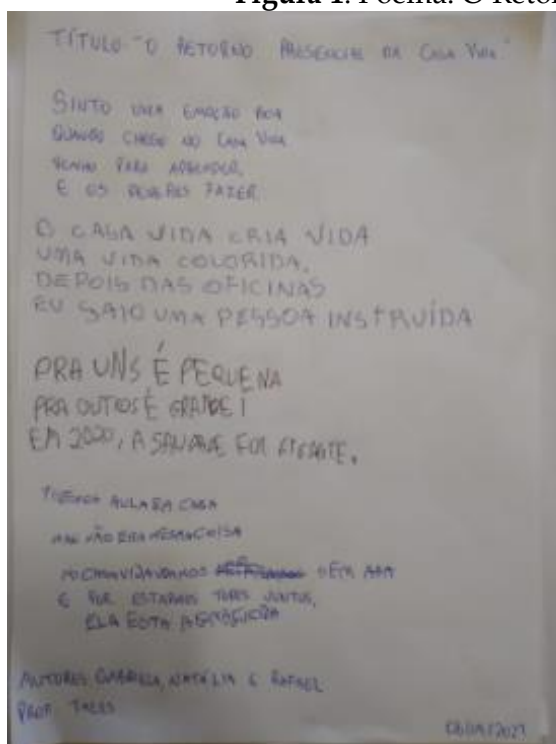 Figura 1: Poema: O Retor
TÍTULO "O RETORNO PRESENCIAL DA CASA VIDA"
SINTO UMA EMOÇÃO BOA
QUANDO CHEGO NO CASA VIDA
VENHO PARA APRENDER,
E OS DEVERES FAZER.
O CASA VIDA CRIA VIDA
UMA VIDA COLORIDA.
DEPOIS DAS OFICINAS
EU SAIO UMA PESSOA INSTRUÍDA
PRA UNS É PEQUENA
PRA OUTROS É GRANDE!
EM 2020, A SAUDADE FOI
TIVEMOS AULA EM CASA
MAS NÃO ERA MESMA COISA
NO CASA VIDA SEM
E POR ESTARMOS TODOS JUNTOS,
ELA ESTA
AUTORES GABRIELA, NATÁLIA E RAFAEL
PROF. TALES